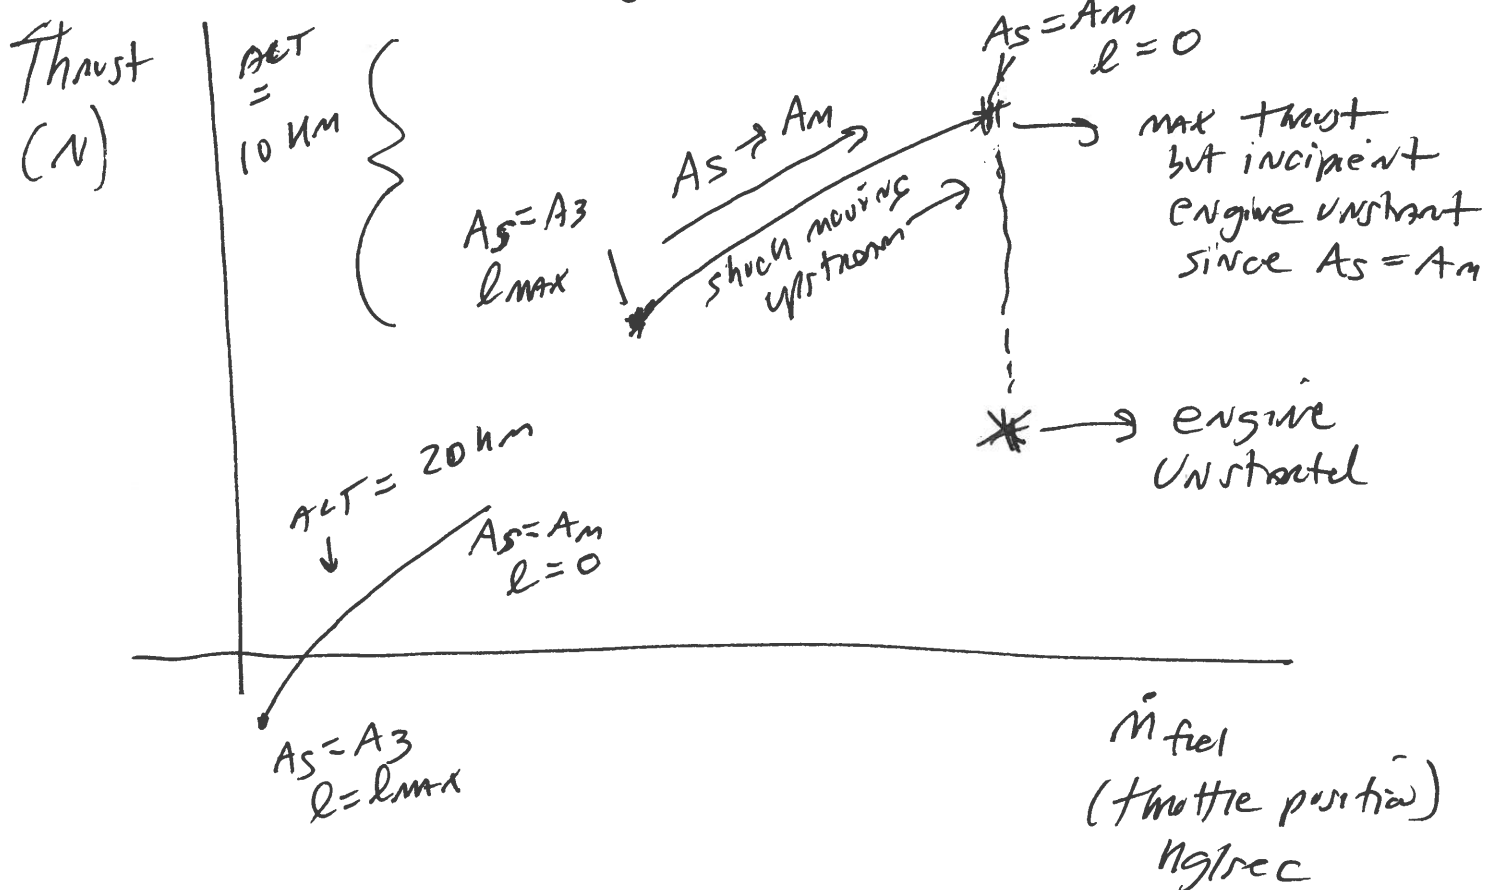 Thrust
(N)
ALT
=
10 KM
As = A3
lMAX
As → AM
shock moving
upstream
As = AM
l = 0
MAX thrust
but incipient
engine unstart
since As = AM
engine
unstarted
ALT = 20 KM
As = AM
l = 0
As = A3
l = lMAX
ṁ fuel
(throttle position)
kg/sec